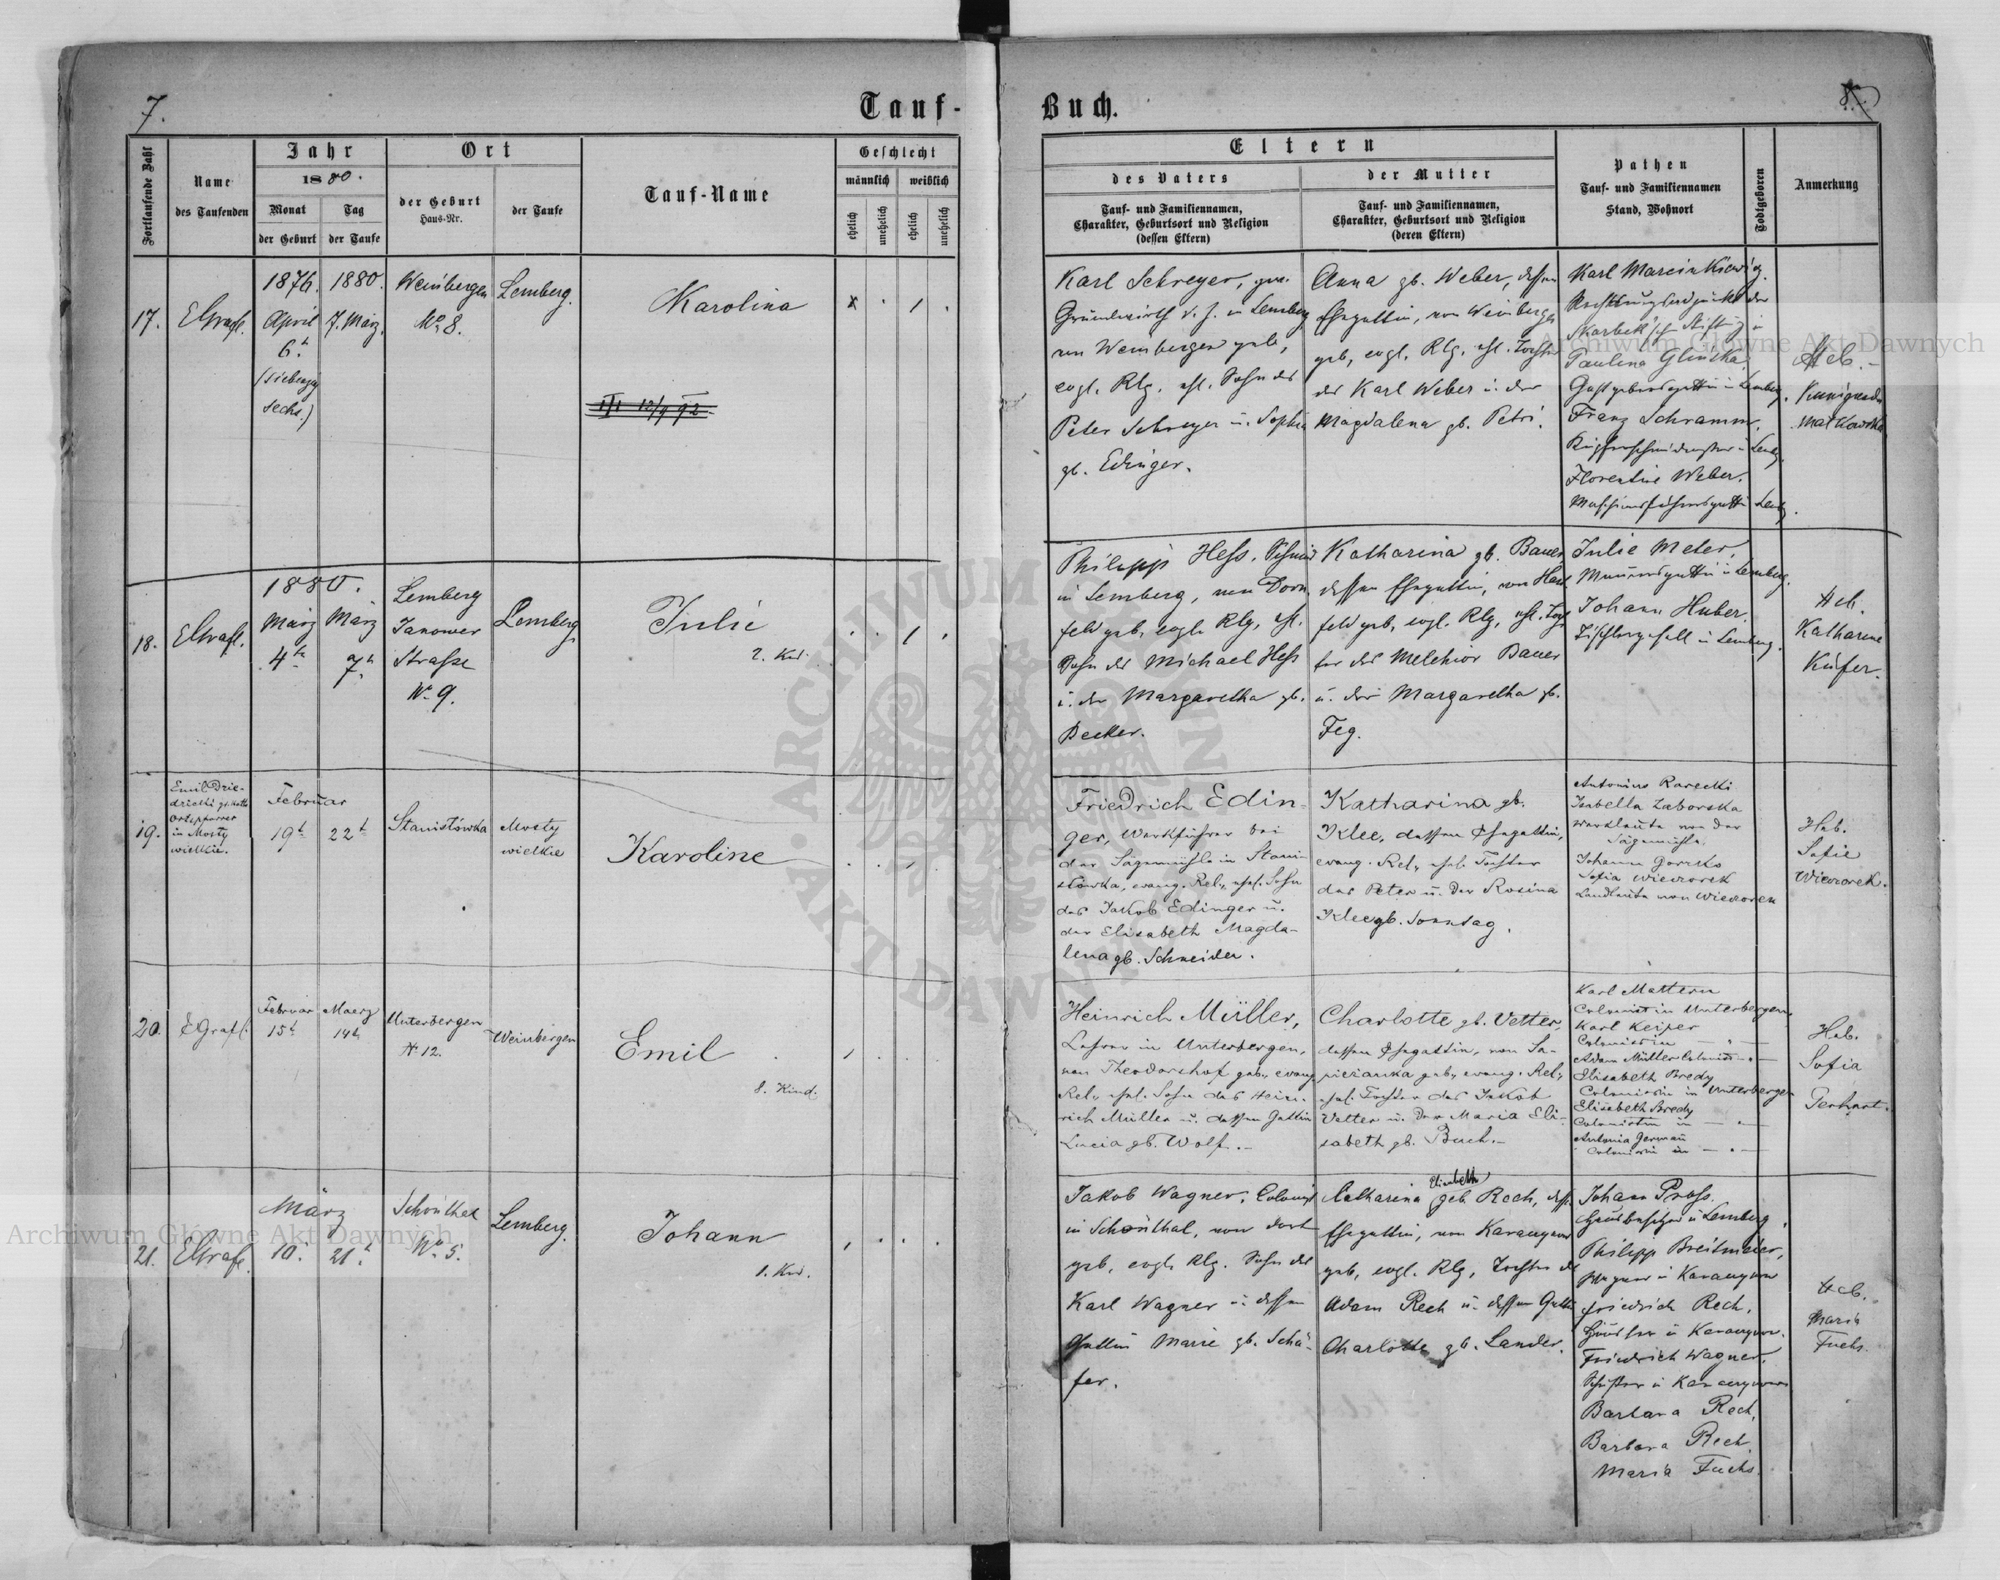 7.
Tauf-
Buch.
8.
Fortlaufende Zahl
Name
des Taufenden
Jahr
1880.
Monat
der Geburt
Tag
der Taufe
Ort
der Geburt
Haus-Nr.
der Taufe
Tauf-Name
Geschlecht
männlich
weiblich
ehelich
unehelich
ehelich
unehelich
Eltern
des Vaters
Tauf- und Familiennamen,
Charakter, Geburtsort und Religion
(dessen Eltern)
der Mutter
Tauf- und Familiennamen,
Charakter, Geburtsort und Religion
(deren Eltern)
Pathen
Tauf- und Familiennamen
Stand, Wohnort
Todtgeboren
Anmerkung
17.
EGrafl.
1876.
April
6.t
(siebenzig
sechs.)
1880.
7. März.
Weinbergen
No 8.
Lemberg.
Karolina
Karl Schreyer, gew.
Grundwirth d. Z. in Lemberg
von Weinbergen geb,
evgl. Rlg. ehl. Sohn des
Peter Schreyer u. Sophia
gb. Edinger.
Anna gb. Weber, dessen
Ehegattin, von Weinbergen
geb, evgl. Rlg. ehl. Tochter
des Karl Weber u. der
Magdalena gb. Petri.
Karl Marcinkiewicz.
Skarbek'schen Stiftung in
Paulina Glinska,
Gastgebersgattin in Lemberg.
Franz Schramm.
Kupferschmidmeister in Lembg.
Florentine Weber.
Maschinenführersgattin Lembg.
Heb.
Kunigunda
Matkowska
18.
EGrafl.
1880.
März
4te
März
7t.
Lemberg
Janower
Strasse
No 9.
Lemberg.
Julie
2. Kd.
Philipp Hess, Schmied
in Lemberg, von Dorn-
feld geb, evgl. Rlg, ehl.
Sohn des Michael Hess
u. der Margaretha gb.
Becker.
Katharina gb. Bauer
dessen Ehegattin, von
feld geb, evgl. Rlg, ehl. Toch-
ter des Melchior Bauer
u. der Margaretha gb.
Feg.
Julie Meter,
Maurersgattin in Lemberg.
Johann Huber.
Tischlergesell in Lemberg.
Heb.
Katharine
Küfer.
19.
Emil Drie-
Ortspfarrer
in Mosty
wielkie.
Februar
19t
22t
Stanislówka
Mosty
wielkie
Karoline
Friedrich Edin-
ger, Werkführer bei
der Sägemühle in Stani-
slówka, evang. Rel., ehel. Sohn
des Jakob Edinger u.
der Elisabeth Magda-
lena gb. Schneider.
Katharina gb.
Klee, dessen Ehegattin,
evang. Rel., ehel. Tochter
des Peter u. der Rosina
Klee gb. Sonntag.
Antonius Rarecki
Isabella Zaborska
Werkleute von der
Sägemühle.
Johann Gorecko
Sofia Wieczorek
Landleute von Wieczoren
Heb.
Sofie
Wieczorek.
20.
EGrafl.
Februar
15t
Maerz
14t
Unterbergen
N 12.
Weinbergen
Emil
8. Kind.
Heinrich Müller,
Lehrer in Unterbergen,
von Theodorshof geb., evang.
Rel., ehel. Sohn des Hein-
rich Müller u. dessen Gattin
Lucia gb. Wolf.
Charlotte gb. Vetter,
dessen Ehegattin, von Sa-
piezanka geb., evang. Rel.,
ehel. Tochter des Jakob
Vetter u. der Maria Eli-
sabeth gb. Buch.
Karl Mattern
Colonist in Unterbergen.
Karl Keiper
Colonist in — " —
Adam Müller Colonist — " —
Elisabeth Bredy
Colonistin in Unterbergen
Elisabeth Bredy
Colonistin in — " —
Antonia German
Colonistin in — " —
Heb.
Sofia
Gerhart.
21.
EGrafl.
März
10.
21.t
Schönthal
No 5.
Lemberg.
Johann
1. Kd.
Jakob Wagner, Colonist
in Schönthal, von dort
geb, evgl. Rlg. Sohn des
Karl Wagner u. dessen
Gattin Marie gb. Schä-
fer.
Elisabeth
Catharina geb Rech, dess.
Ehegattin, von Karaczynow
geb, evgl. Rlg, Tochter des
Adam Rech u. dessen Gattin
Charlotte gb. Lander.
Johann Pross.
Grundbesitzer in Lemberg,
Philipp Breitmeier,
Wagner in Karaczynow
Friedrich Rech,
Friedrich Wagner,
Barbara Rech,
Barbara Rech,
Maria Fuchs.
Heb.
Maria
Fuchs.
Archiwum Główne Akt Dawnych
Archiwum Główne Akt Dawnych